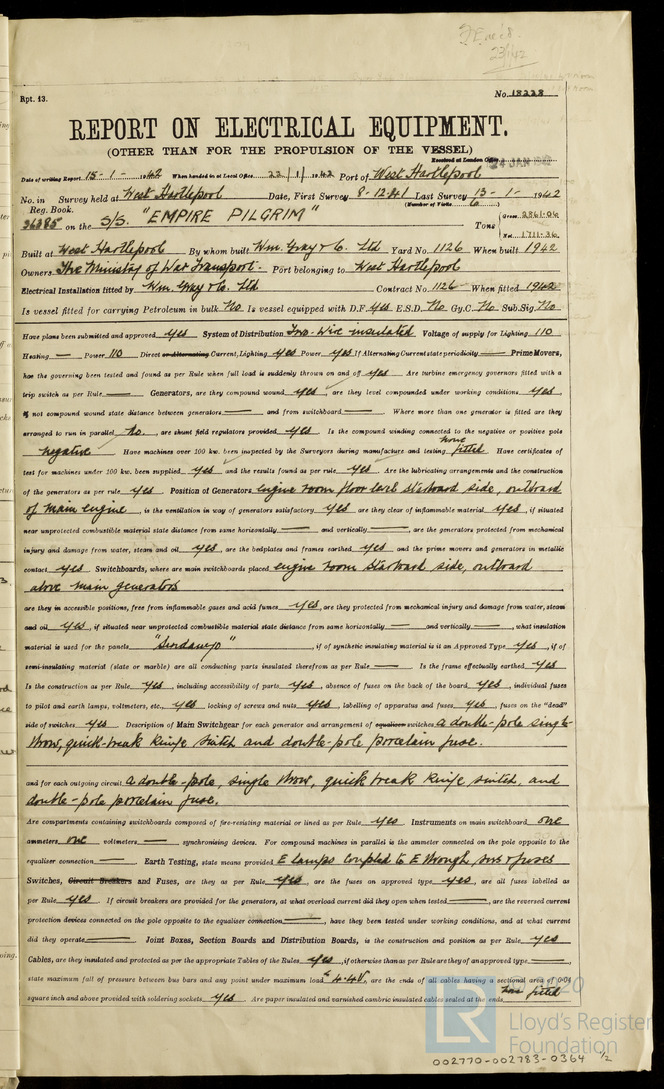 23/1/42
Rpt. 13.
No. 18228
REPORT ON ELECTRICAL EQUIPMENT.
(OTHER THAN FOR THE PROPULSION OF THE VESSEL)
Received at London Office 24 JAN 1942
Date of writing Report 15-1- 1942 When handed in at Local Office 22/1/1942 Port of West Hartlepool
No. in Survey held at West Hartlepool Date, First Survey 8-12-41 Last Survey 13-1- 1942
Reg. Book. (Number of Visits 6)
36385 on the S/S. "EMPIRE PILGRIM" Tons { Gross 2861.06
Net 1711.36
Built at West Hartlepool By whom built Wm. Gray & Co. Ltd Yard No. 1126 When built 1942
Owners The Ministry of War Transport. Port belonging to West Hartlepool
Electrical Installation fitted by Wm. Gray & Co. Ltd Contract No. 1126 When fitted 1942
Is vessel fitted for carrying Petroleum in bulk No Is vessel equipped with D.F. Yes E.S.D. No Gy.C. No Sub.Sig. No
Have plans been submitted and approved yes System of Distribution Two-Wire insulated Voltage of supply for Lighting 110
Heating — Power 110 Direct or Alternating Current, Lighting yes Power yes If Alternating Current state periodicity — Prime Movers,
has the governing been tested and found as per Rule when full load is suddenly thrown on and off yes Are turbine emergency governors fitted with a
trip switch as per Rule — Generators, are they compound wound yes, are they level compounded under working conditions yes,
if not compound wound state distance between generators — and from switchboard — Where more than one generator is fitted are they
arranged to run in parallel no, are shunt field regulators provided yes Is the compound winding connected to the negative or positive pole
negative Have machines over 100 kw. been inspected by the Surveyors during manufacture and testing none fitted Have certificates of
test for machines under 100 kw. been supplied yes and the results found as per rule yes Are the lubricating arrangements and the construction
of the generators as per rule yes Position of Generators engine room floor level starboard side, outboard
of main engine, is the ventilation in way of generators satisfactory yes are they clear of inflammable material yes, if situated
near unprotected combustible material state distance from same horizontally — and vertically —, are the generators protected from mechanical
injury and damage from water, steam and oil yes, are the bedplates and frames earthed yes and the prime movers and generators in metallic
contact yes Switchboards, where are main switchboards placed engine room starboard side, outboard
above main generators
are they in accessible positions, free from inflammable gases and acid fumes yes, are they protected from mechanical injury and damage from water, steam
and oil yes, if situated near unprotected combustible material state distance from same horizontally — and vertically —, what insulation
material is used for the panels "Sindanyo", if of synthetic insulating material is it an Approved Type yes, if of
semi-insulating material (slate or marble) are all conducting parts insulated therefrom as per Rule — Is the frame effectually earthed yes
Is the construction as per Rule yes, including accessibility of parts yes, absence of fuses on the back of the board yes, individual fuses
to pilot and earth lamps, voltmeters, etc., yes locking of screws and nuts yes, labelling of apparatus and fuses yes, fuses on the "dead"
side of switches yes Description of Main Switchgear for each generator and arrangement of equaliser switches a double-pole single-
throw, quick-break knife switch and double-pole porcelain fuse.
and for each outgoing circuit a double-pole, single throw, quick break knife switch, and
double-pole porcelain fuse.
Are compartments containing switchboards composed of fire-resisting material or lined as per Rule yes Instruments on main switchboard one
ammeters one voltmeters — synchronising devices. For compound machines in parallel is the ammeter connected on the pole opposite to the
equaliser connection — Earth Testing, state means provided E lamps coupled to E through sws & fuses
Switches, Circuit Breakers and Fuses, are they as per Rule yes, are the fuses on approved type yes, are all fuses labelled as
per Rule yes If circuit breakers are provided for the generators, at what overload current did they open when tested —, are the reversed current
protection devices connected on the pole opposite to the equaliser connection —, have they been tested under working conditions, and at what current
did they operate — Joint Boxes, Section Boards and Distribution Boards, is the construction and position as per Rule yes
Cables, are they insulated and protected as per the appropriate Tables of the Rules yes, if otherwise than as per Rule are they of an approved type —,
state maximum fall of pressure between bus bars and any point under maximum load 4.4V, are the ends of all cables having a sectional area of 0.01
square inch and above provided with soldering sockets yes Are paper insulated and varnished cambric insulated cables sealed at the ends none fitted
LR
Lloyd's Register
Foundation
002770-002783-0364 1/2